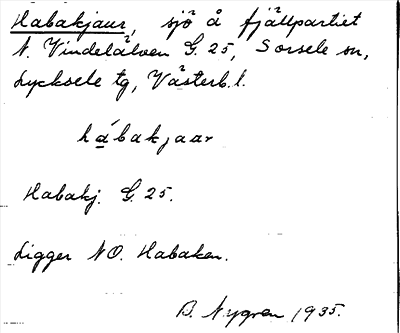 Habakjaur, sjö å fjällpartiet
N. Vindelälven G. 25, Sorsele sn,
Lycksele tg, Västerb. l.
hábakjaar
Habakj. G. 25.
Ligger NO. Habaken.
B. Nygren 1935.